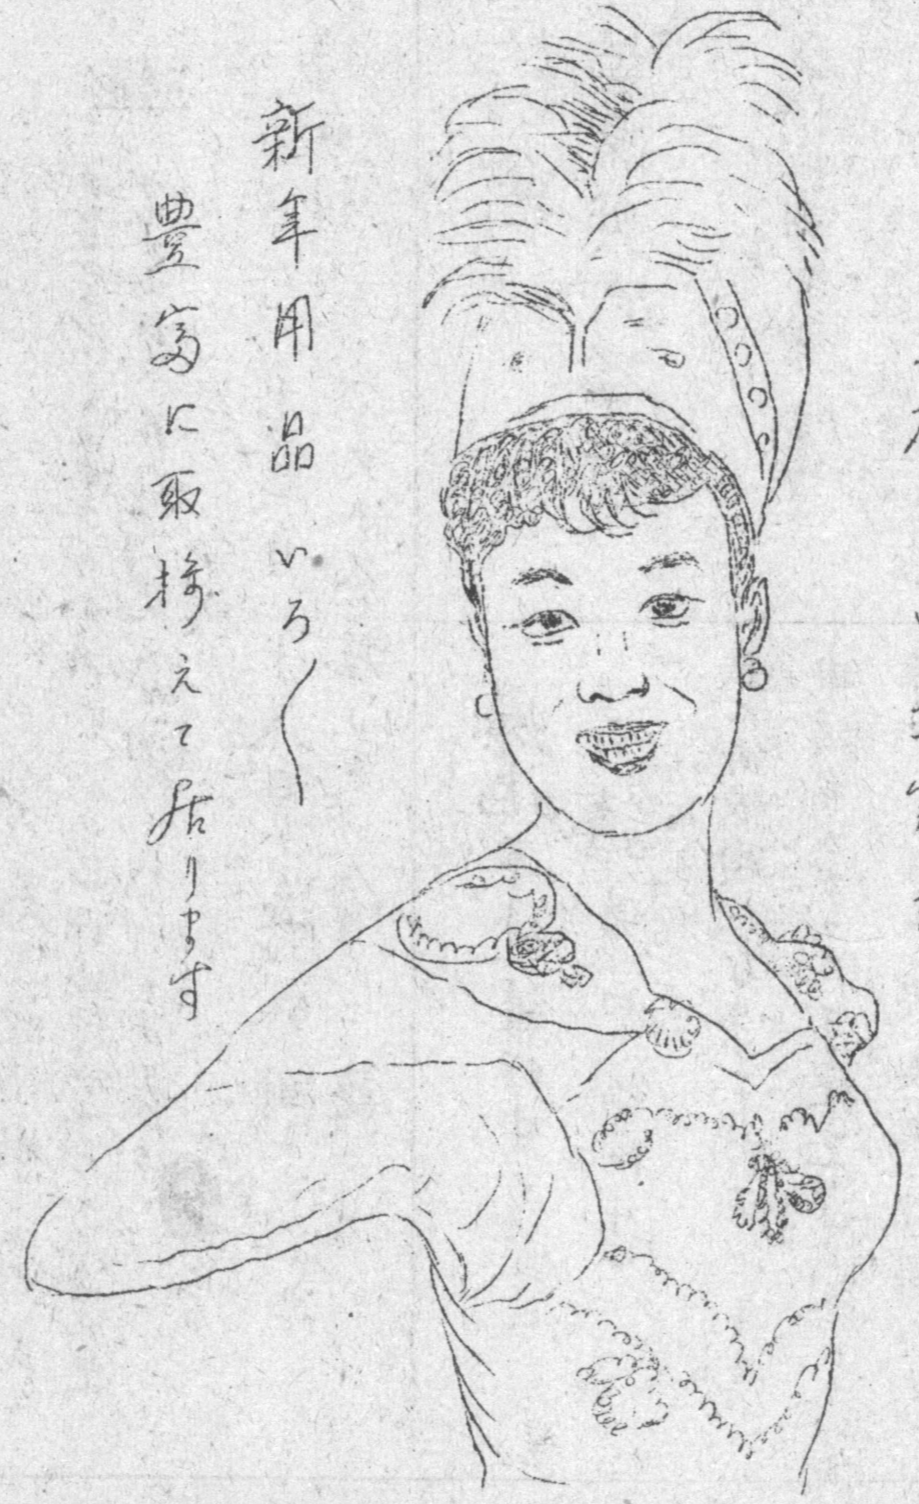 新年用品いろ〱
豊富に取揃えて居ります